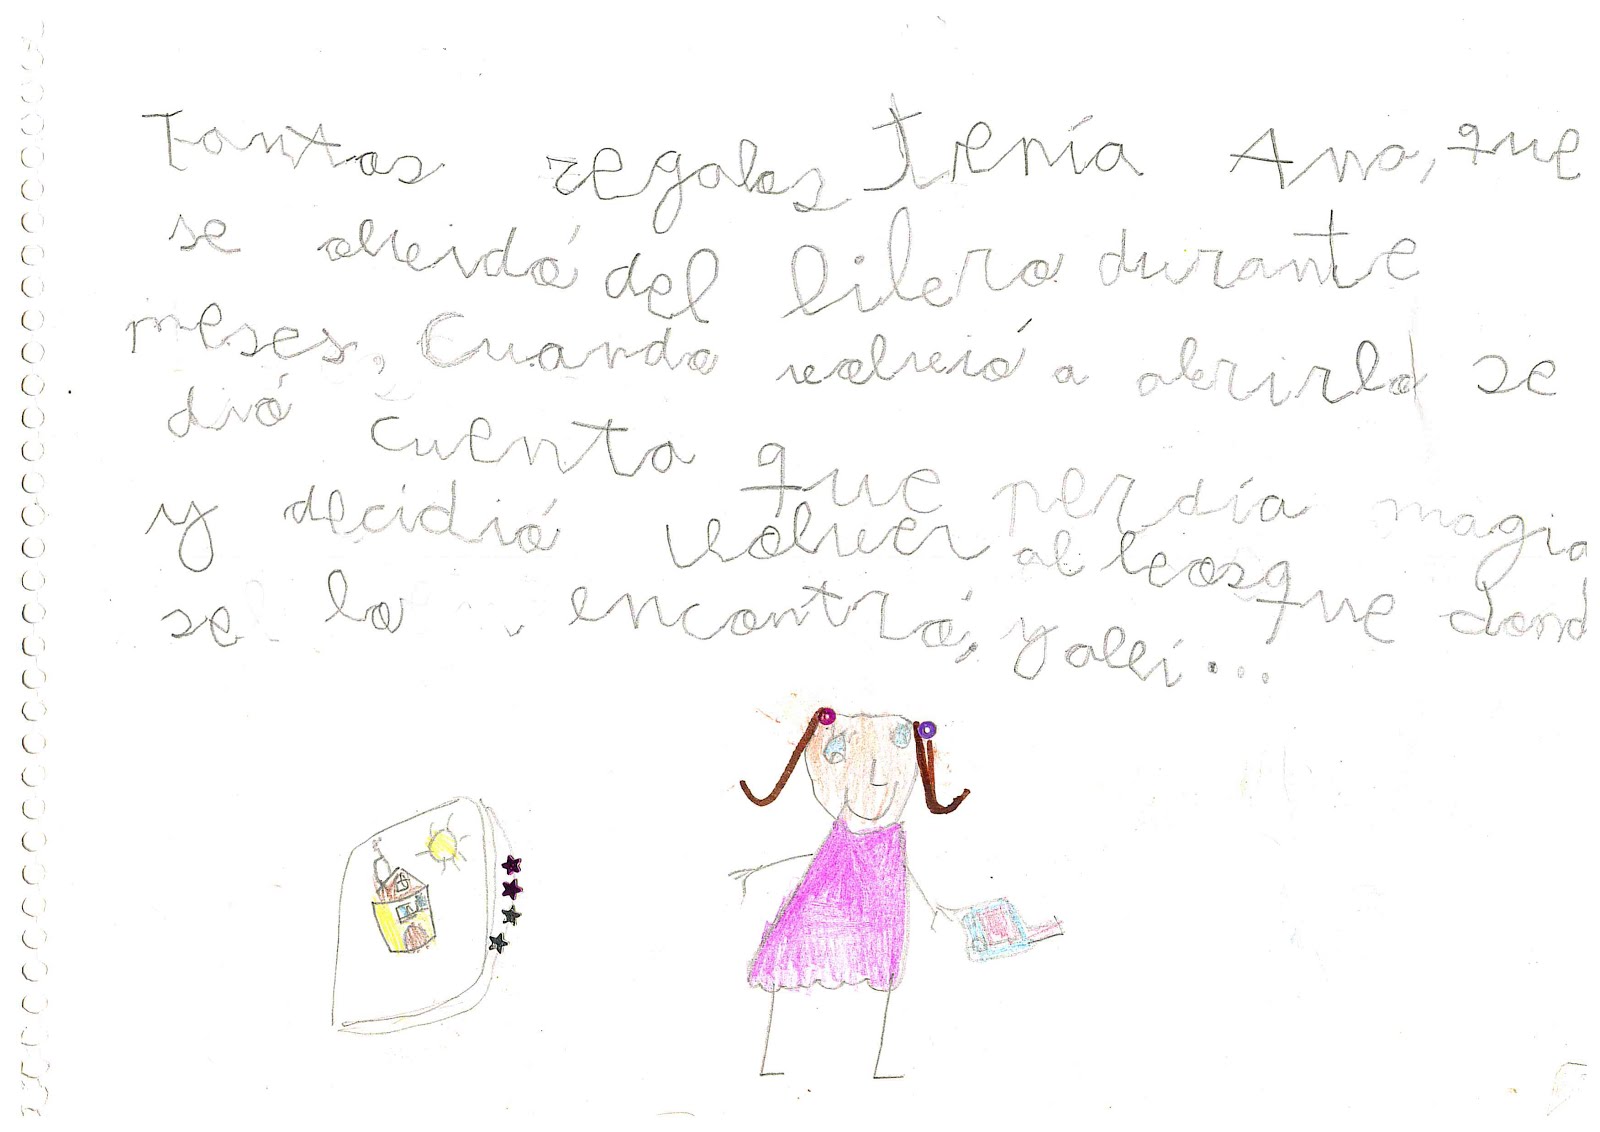 Tantos regalos tenía Ana, que
se olvidó del libro durante
meses. Cuando volvió a abrirlo se
dió cuenta que perdía magia
y decidió volver al bosque dond
se lo encontró, y allí...